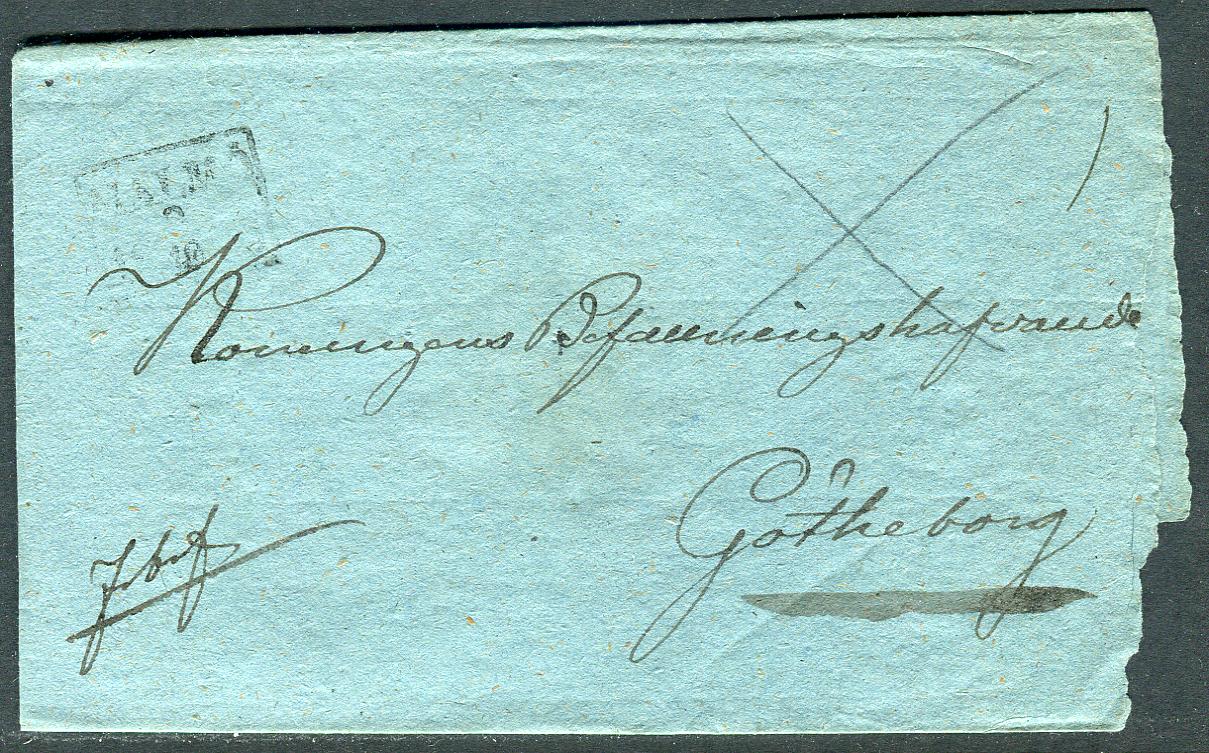 Konungens Befallningshafvande
Götheborg